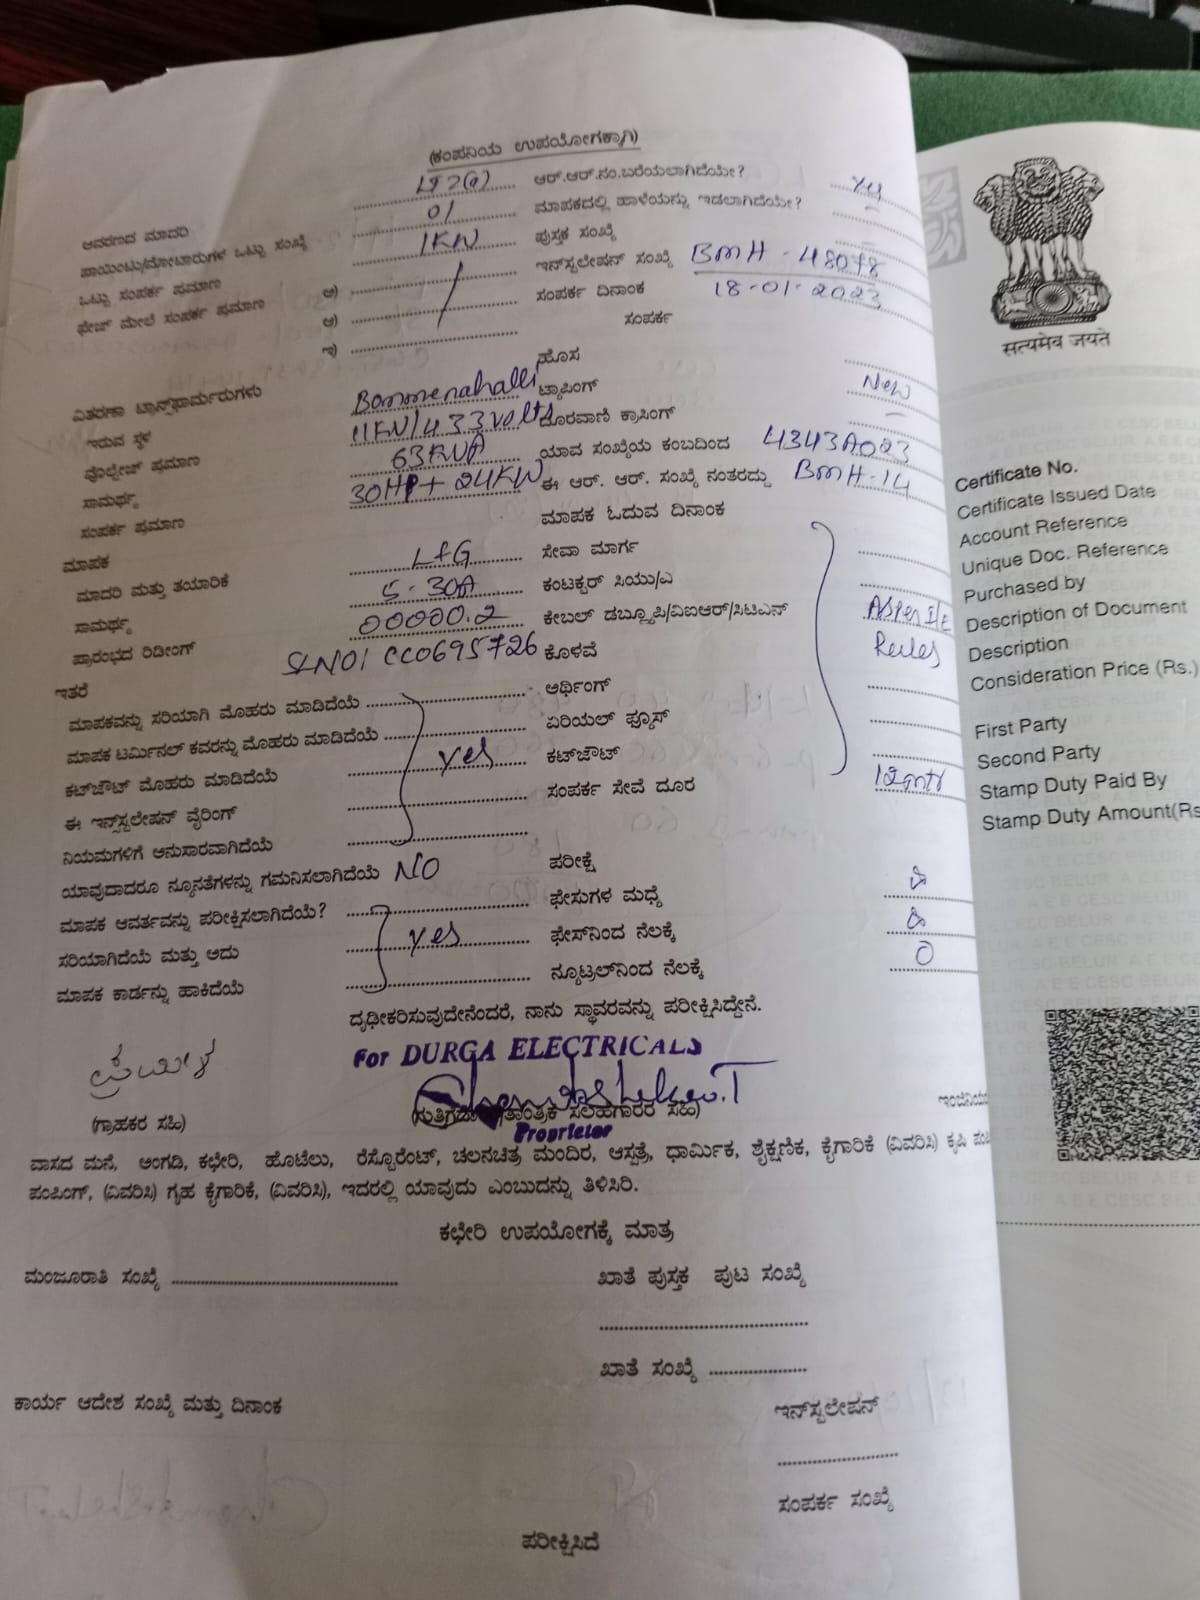 (ಕಂಪನಿಯ ಉಪಯೋಗಕ್ಕಾಗಿ)
ಆವರಣದ ಮಾದರಿ ............ ಆರ್.ಆರ್.ನಂ.ಬರೆಯಲಾಗಿದೆಯೇ?
ಪಾಯಿಂಟು/ಮೋಟಾರುಗಳ ಒಟ್ಟು ಸಂಖ್ಯೆ 01 ಮಾಪಕದಲ್ಲಿ ಹಾಳೆಯನ್ನು ಇಡಲಾಗಿದೆಯೇ?
ಒಟ್ಟು ಸಂಪರ್ಕ ಪ್ರಮಾಣ 1KW ಪುಸ್ತಕ ಸಂಖ್ಯೆ
ಫೇಜ್ ಮೇಲೆ ಸಂಪರ್ಕ ಪ್ರಮಾಣ ಅ) ಇನ್‌ಸ್ಟಲೇಷನ್ ಸಂಖ್ಯೆ BMH - 48078
ಆ) ಸಂಪರ್ಕ ದಿನಾಂಕ 18-01-2023
ಇ) ಸಂಪರ್ಕ
ವಿತರಣಾ ಟ್ರಾನ್ಸ್‌ಫಾರ್ಮರುಗಳು ಹೊಸ
ಇರುವ ಸ್ಥಳ Bommenahalli ಟ್ಯಾಪಿಂಗ್ New
ವೋಲ್ಟೇಜ್ ಪ್ರಮಾಣ 11KV/433 volts ದೂರವಾಣಿ ಕ್ರಾಸಿಂಗ್
ಸಾಮರ್ಥ್ಯ 63KVA ಯಾವ ಸಂಖ್ಯೆಯ ಕಂಬದಿಂದ 4343A023
ಸಂಪರ್ಕ ಪ್ರಮಾಣ 30HP + 24KW ಈ ಆರ್. ಆರ್. ಸಂಖ್ಯೆ ನಂತರದ್ದು BMH-14
ಮಾಪಕ ಮಾಪಕ ಓದುವ ದಿನಾಂಕ
ಮಾದರಿ ಮತ್ತು ತಯಾರಿಕೆ L&G ಸೇವಾ ಮಾರ್ಗ
ಸಾಮರ್ಥ್ಯ 5-30A ಕಂಟಕ್ಟರ್ ಸಿಯು/ಎ
ಪ್ರಾರಂಭದ ರಿಡೀಂಗ್ 00000.2 ಕೇಬಲ್ ಡಬ್ಲ್ಯೂಪಿ/ವಿಐಆರ್/ಸಿಟಿಎನ್
ಇತರೆ SLNO1 CC0695726 ಕೊಳವೆ Rules
ಮಾಪಕವನ್ನು ಸರಿಯಾಗಿ ಮೊಹರು ಮಾಡಿದೆಯೆ ............ ಅರ್ಥಿಂಗ್
ಮಾಪಕ ಟರ್ಮಿನಲ್ ಕವರನ್ನು ಮೊಹರು ಮಾಡಿದೆಯೆ ............ ಏರಿಯಲ್ ಫ್ಯೂಸ್
ಕಟ್‌ಔಟ್ ಮೊಹರು ಮಾಡಿದೆಯೆ Yes ಕಟ್‌ಔಟ್
ಈ ಇನ್ಸ್‌ಸ್ಟಲೇಷನ್ ವೈರಿಂಗ್ ಸಂಪರ್ಕ ಸೇವೆ ದೂರ 12mtr
ನಿಯಮಗಳಿಗೆ ಅನುಸಾರವಾಗಿದೆಯೆ
ಯಾವುದಾದರೂ ನ್ಯೂನತೆಗಳನ್ನು ಗಮನಿಸಲಾಗಿದೆಯೆ NO ಪರೀಕ್ಷೆ
ಮಾಪಕ ಆವರ್ತವನ್ನು ಪರೀಕ್ಷಿಸಲಾಗಿದೆಯೆ? ಫೇಸುಗಳ ಮಧ್ಯೆ
ಸರಿಯಾಗಿದೆಯೆ ಮತ್ತು ಅದು Yes ಫೇಸ್‌ನಿಂದ ನೆಲಕ್ಕೆ
ಮಾಪಕ ಕಾರ್ಡನ್ನು ಹಾಕಿದೆಯೆ ನ್ಯೂಟ್ರಲ್‌ನಿಂದ ನೆಲಕ್ಕೆ 0
ದೃಢೀಕರಿಸುವುದೇನೆಂದರೆ, ನಾನು ಸ್ಥಾವರವನ್ನು ಪರೀಕ್ಷಿಸಿದ್ದೇನೆ.
For DURGA ELECTRICALS
(ಗ್ರಾಹಕರ ಸಹಿ)
Proprietor
ವಾಸದ ಮನೆ, ಅಂಗಡಿ, ಕಛೇರಿ, ಹೊಟೆಲು, ರೆಸ್ಟೊರೆಂಟ್, ಚಲನಚಿತ್ರ ಮಂದಿರ, ಆಸ್ಪತ್ರೆ, ಧಾರ್ಮಿಕ, ಶೈಕ್ಷಣಿಕ, ಕೈಗಾರಿಕೆ (ವಿವರಿಸಿ) ಕೃಷಿ
ಪಂಪಿಂಗ್, (ವಿವರಿಸಿ) ಗೃಹ ಕೈಗಾರಿಕೆ, (ವಿವರಿಸಿ), ಇದರಲ್ಲಿ ಯಾವುದು ಎಂಬುದನ್ನು ತಿಳಿಸಿರಿ.
ಕಛೇರಿ ಉಪಯೋಗಕ್ಕೆ ಮಾತ್ರ
ಮಂಜೂರಾತಿ ಸಂಖ್ಯೆ ............ ಖಾತೆ ಪುಸ್ತಕ ಪುಟ ಸಂಖ್ಯೆ
ಖಾತೆ ಸಂಖ್ಯೆ ............
ಕಾರ್ಯ ಆದೇಶ ಸಂಖ್ಯೆ ಮತ್ತು ದಿನಾಂಕ ಇನ್‌ಸ್ಟಲೇಷನ್
ಸಂಪರ್ಕ ಸಂಖ್ಯೆ
ಪರೀಕ್ಷಿಸಿದೆ
सत्यमेव जयते
Certificate No.
Certificate Issued Date
Account Reference
Unique Doc. Reference
Purchased by
Description of Document
Description
Consideration Price (Rs.)
First Party
Second Party
Stamp Duty Paid By
Stamp Duty Amount(Rs